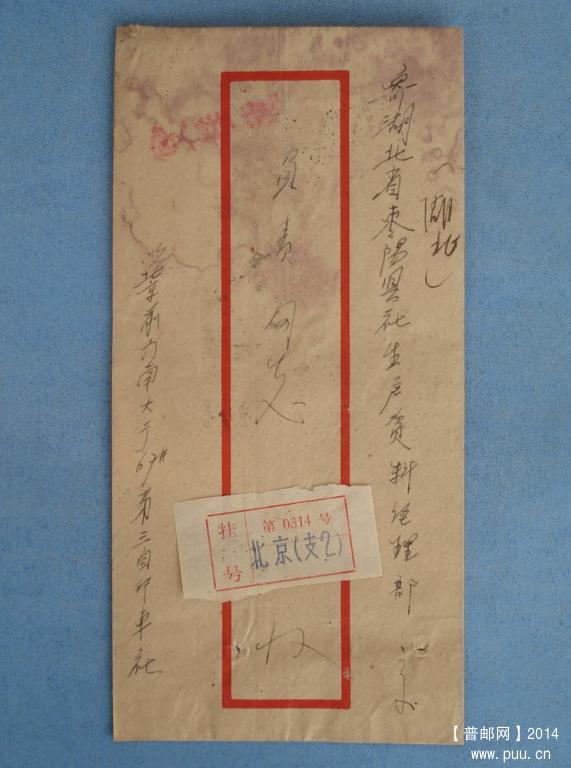 (湖北)
寄湖北省枣阳县社生产资料经理部 交
负责同志 收
挂号
第 0314 号
北京(支2)
北京前门南大于67#第三自印车社
【普邮网】2014
www.puu.cn